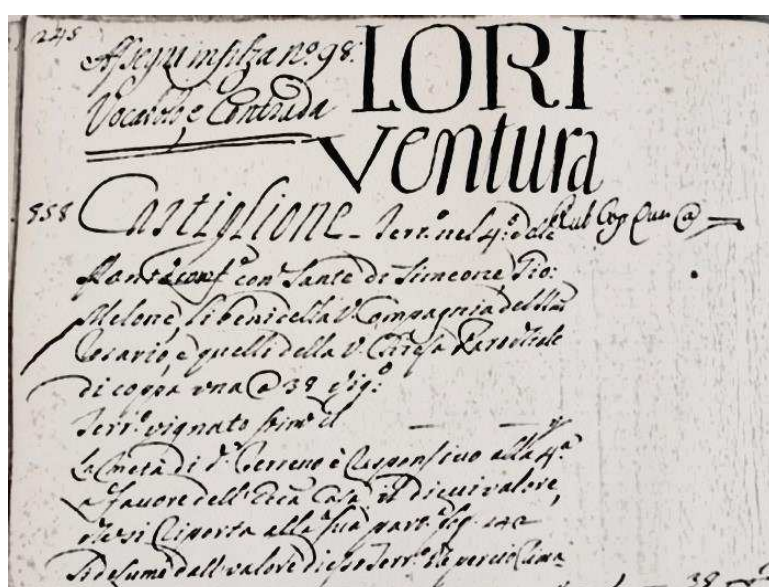 245
Assequi in filza nº. 98.
LORI
Vocabolo, e Contrada
Ventura
858 Castiglione - Terrº. nel 4º. delle Rub Cop Qua @
Piant confº. con Sante di Simeone, Gio:
Melone, li beni della V. Compagnia del SSmo
Rosario, e quelli della V. Chiesa Parochiale
di coppa una @ 38
Terrº. vignato simº. il
La metà di dº. Terreno è Responsivo alla 4ª.
a favore dell' Ecca Casa, il di cui valore,
si Riporta alla sua partª. fog. 142
Si desume dall' valore di Terrº. e perciò
38